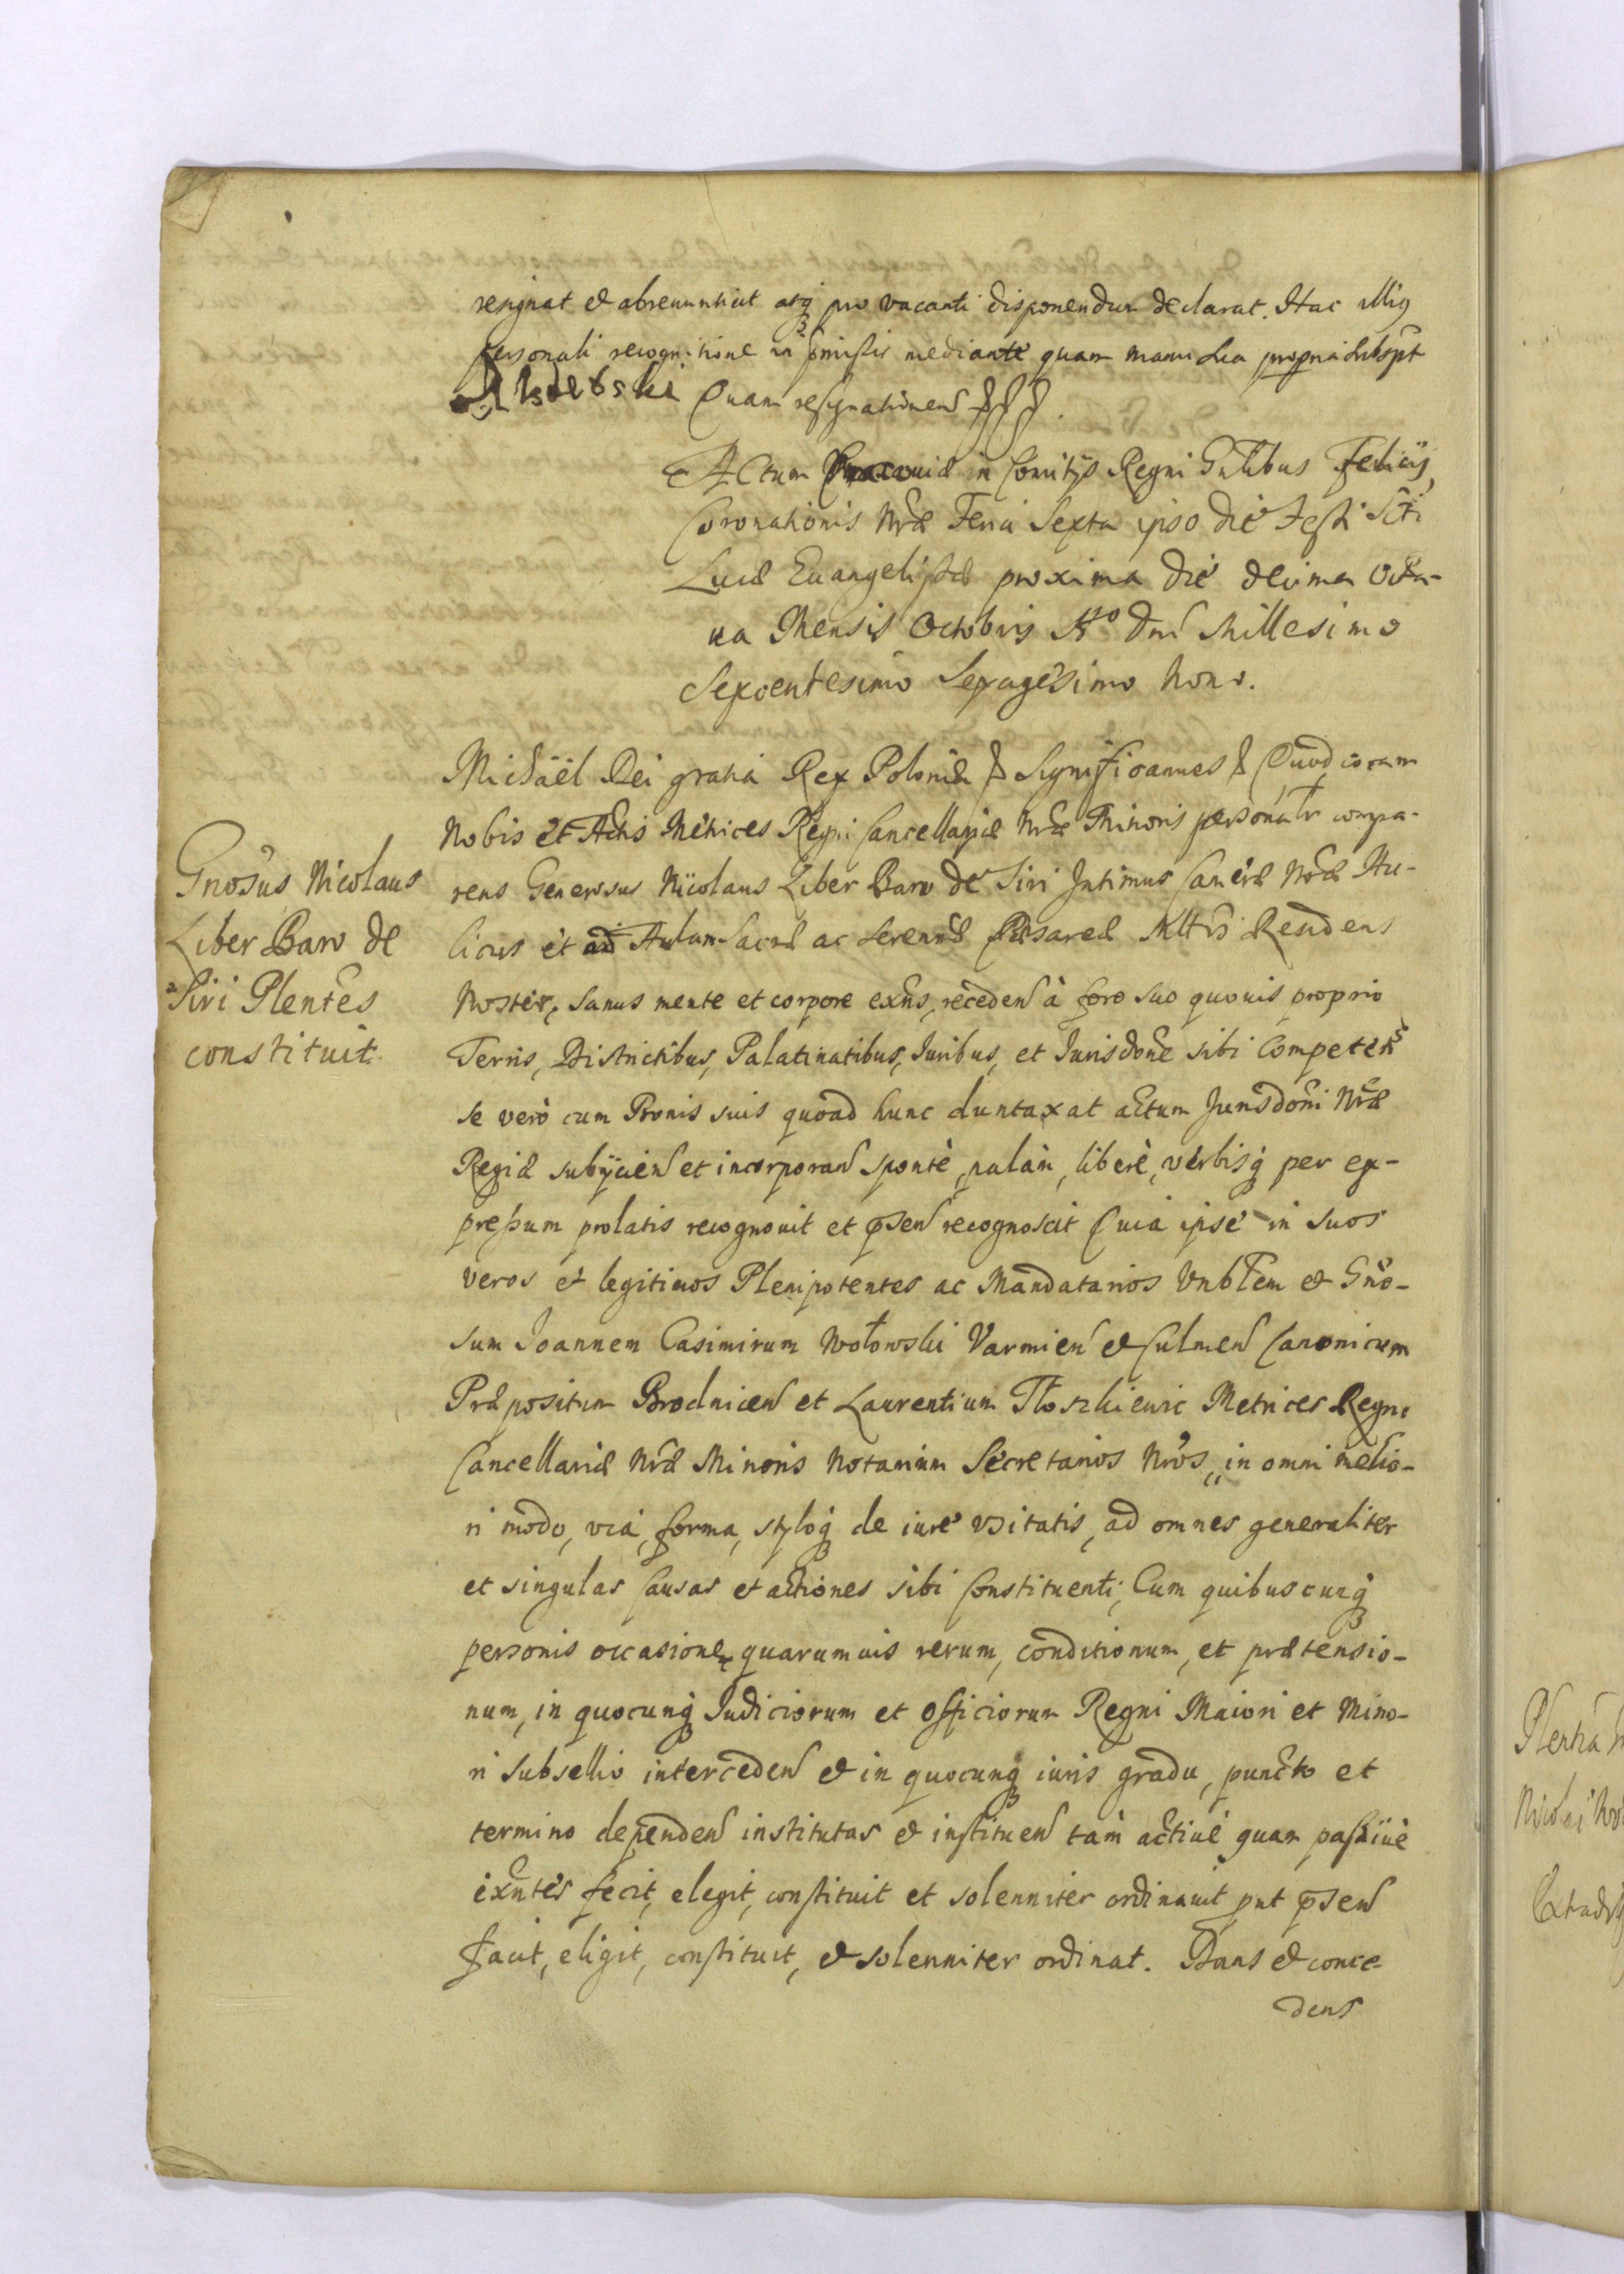 resignat et abrenuntiat atq pro vacanti disponendum declarat. Hac illius
personali recognitione in pmissis mediante quam manu sua propria subspt
Quam resignationem
Actum Cracoviæ in Comitys Regni Gnlibus Felicis
Coronationis Nræ Feria Sexta ipso die Festi Scti
Lucæ Euangelistæ proxima die decima octa-
ua Mensis Octobris Ao Dni Millesimo
Sexcentesimo Sexagesimo Nono.
Michaël Dei gratia Rex Poloniæ Significamus Quod coram
Nobis et Actis Metrices Regni Cancellariæ Nræ Minoris personalr compa-
rens Generosus Nicolaus Liber Baro de Siri Intimus Cameræ Nræ Au-
licus et ad Aulam Sacræ ac Serenmæ Cæsareæ Mttis Residens
Noster, sanus mente et corpore exns, receden à foro suo quouis proprio
Terris, Districtibus, Palatinatibus, Iuribus, et Jurisdone sibi competen
se verò cum Bonis suis quoad hunc duntaxat actum Jurisdoni Nræ
Regiæ subÿcien et incorporan sponte, palàm, liberè, verbisq per ex-
pressum prolatis recognouit et psen recognoscit Quia ipse in suos
veros et legitimos Plenipotentes ac Mandatarios Vnblem et Gno-
sum Joannem Casimirum Wołowski Varmien et Culmen Canonicum
Præpositum Brodnicen et Laurentium Tłoszkiewic Metrices Regni
Cancellariæ Nræ Minoris Notarium Secretarios Nros, in omni melio-
ri modo, via, forma, styloq de iure vsitatis, ad omnes generaliter
et singulas Causas et actiones sibi Constituenti, Cum quibuscunq
personis occasione quarumuis rerum, conditionum, et prætensio-
num, in quocunq Judiciorum et Officiorum Regni Maiori et Mino-
ri subsellio interceden et in quocunq iuris gradu, puncto et
termino dependen institutas et instituen tàm actiuè quam passiuè
exntes fecit, elegit, constituit et solenniter ordinauit put psen
facit, eligit, constituit, et solenniter ordinat. Dans et conce-
dens
Gnosus Nicolaus
Liber Baro de
Siri Plentes
constituit.